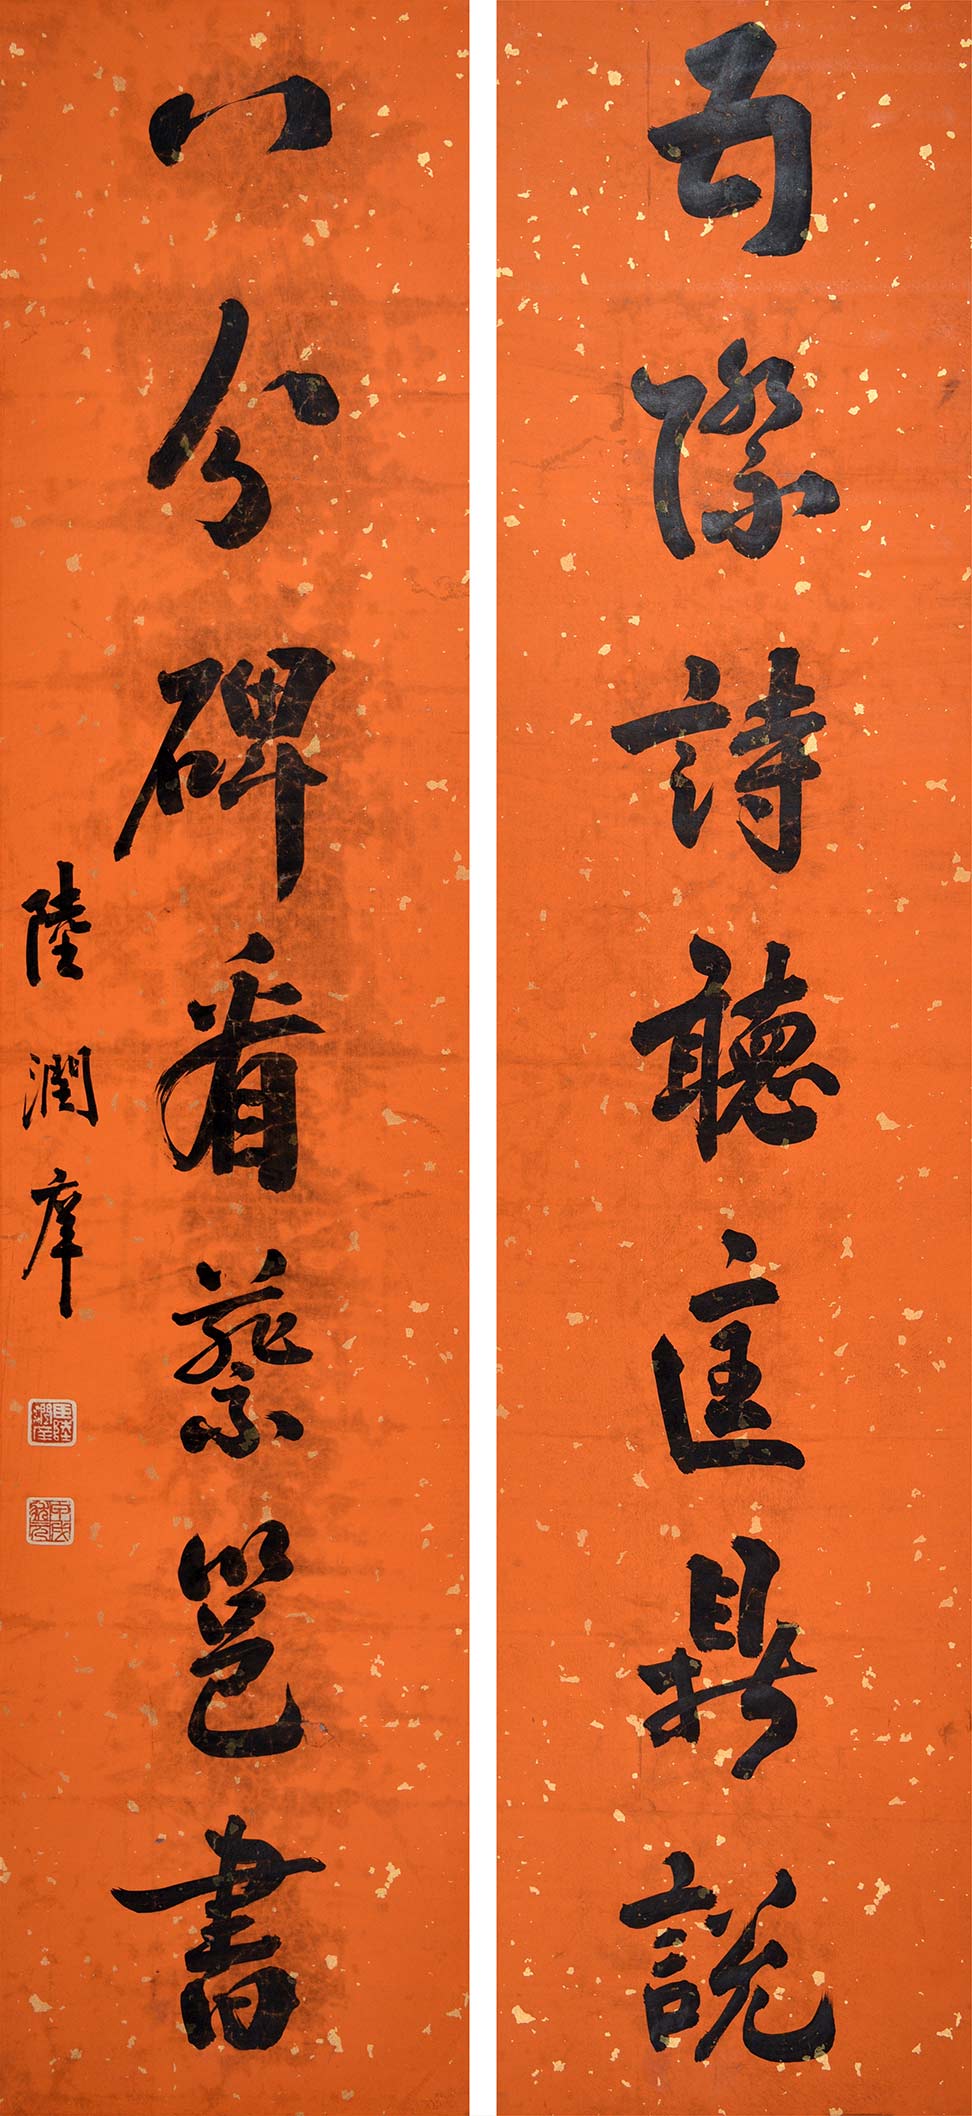 五際詩聽匡鼎說
八分碑看蔡邕書
陸潤庠